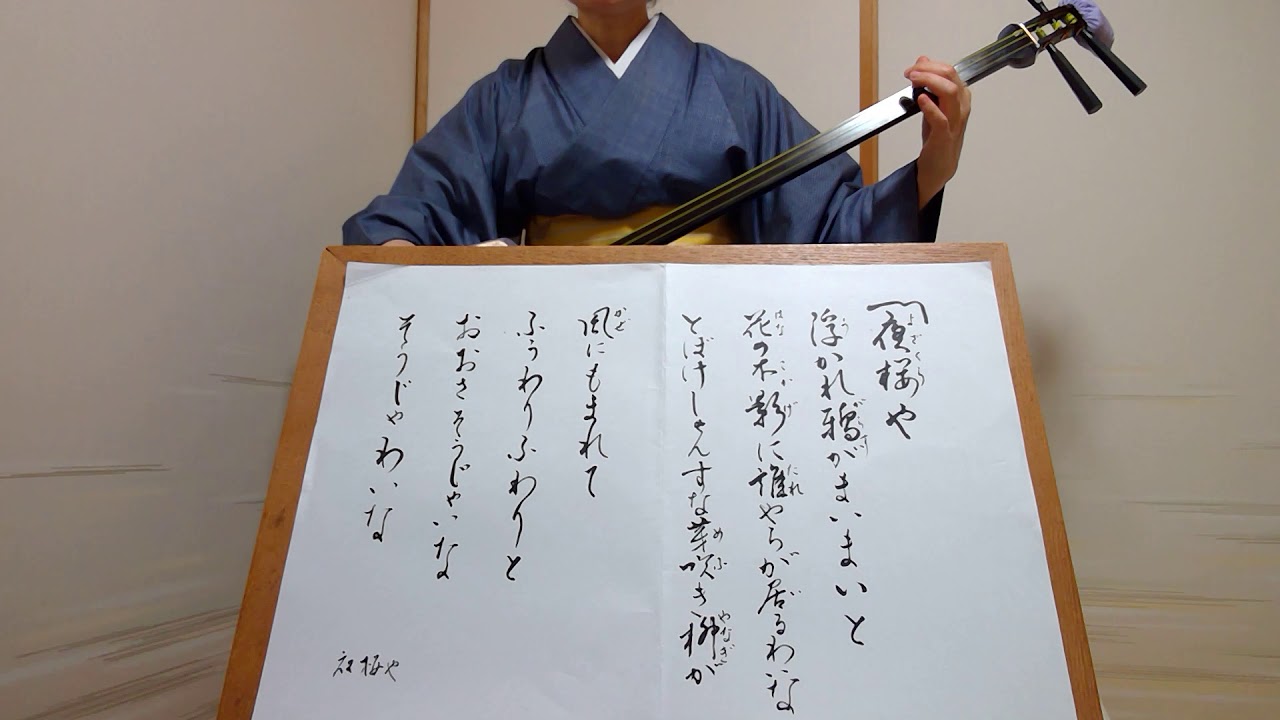 〽夜桜や
浮かれ鴉がまいまいと
花の木影に誰やらが居るわいな
とぼけしゃんすな芽吹き柳が
風にもまれて
ふうわりふわりと
おおさそうじゃいな
そうじゃわいな
夜桜や